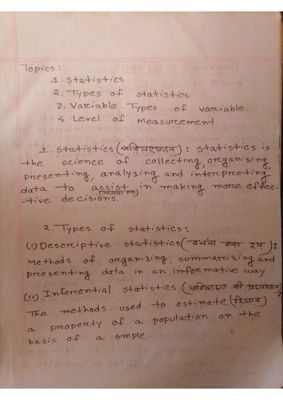 Topics:
1. Statistics
2. Types of statistics
3. Variable Types of variable.
4. Level of Measurement.
1. Statistics (পরিসংখ্যান): Statistics is
the science of collecting, organizing
presenting, analyzing and interpreting
data to assist in making more effec-
tive decisions.
2. Types of statistics:
(i) Descriptive statistics (বর্ণনা করা হয়):
Methods of organizing, summarizing and
presenting data in an informative way
(ii) Inferential statistics
The methods used to estimate (হিসাব)
a property of a population on the
basis of a smple